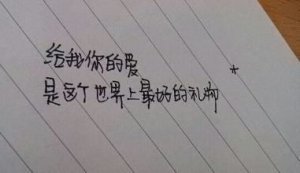 给我你的爱 *
是这个世界上最好的礼物